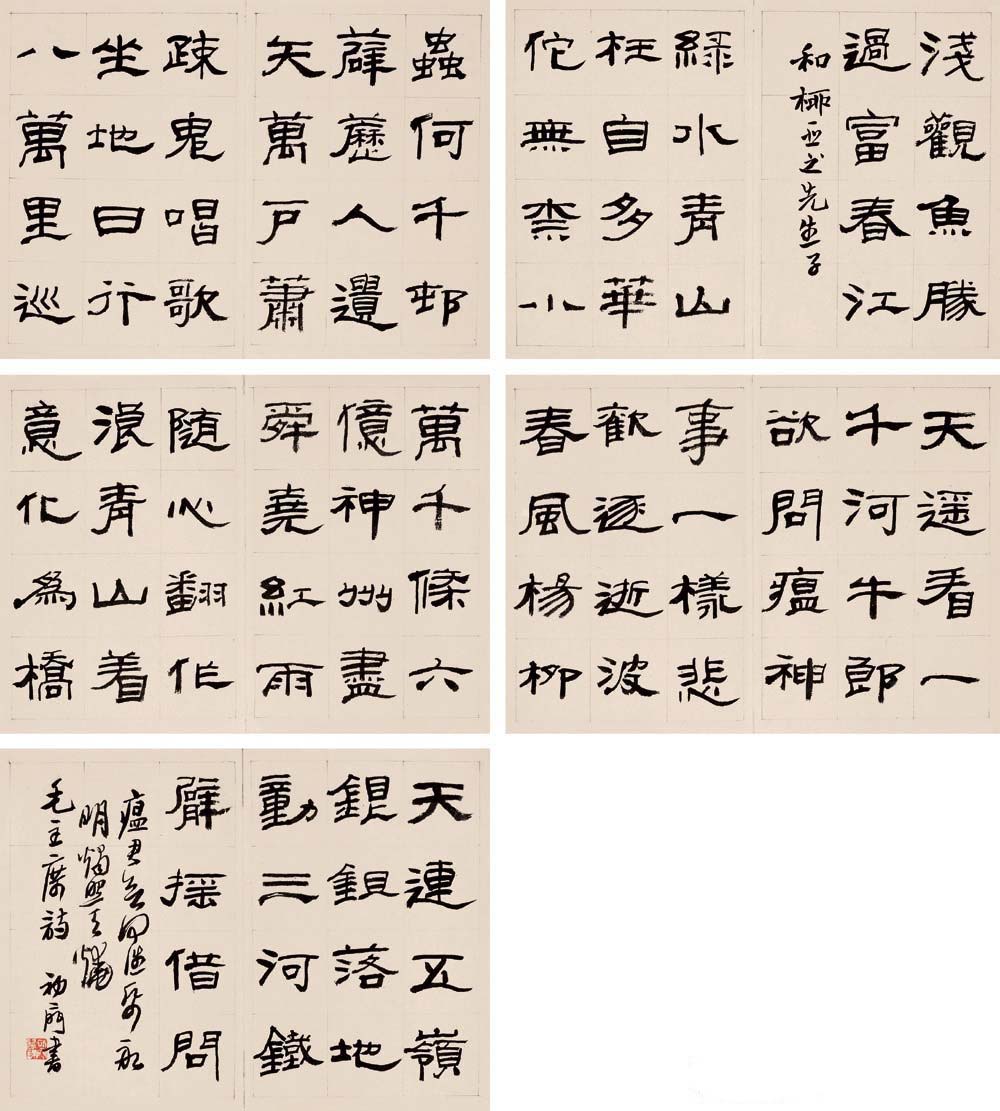 淺觀魚勝
過富春江
和柳亚之先生子
綠水青山
枉自多華
佗無柰小
蟲何千邨
薜藶人遺
矢萬户蕭
疎鬼唱歌
坐地日行
八萬里巡
天遥看一
千河牛郎
欲問瘟神
事一樣悲
歡逐逝波
春風楊柳
萬千條六
億神州盡
舜堯紅雨
随心翻作
浪青山着
意化為橋
天連五嶺
銀鉏落地
動三河鐵
臂摇借問
瘟君欲何往紙船
明燭照天燒
毛主席詩 書